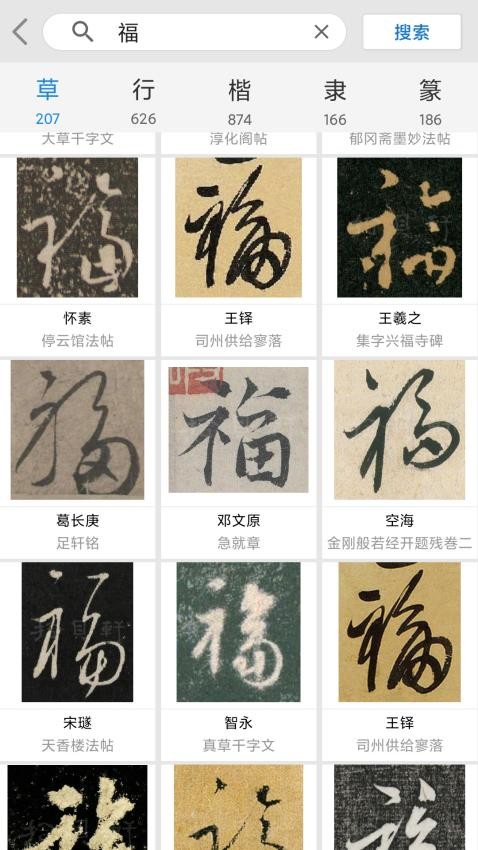 福
搜索
草 行 楷 隶 篆
207 626 874 166 186
大草千字文 淳化阁帖 郁冈斋墨妙法帖
福 福 福
怀素 王铎 王羲之
停云馆法帖 司州供给寥落 集字兴福寺碑
福 福 福
葛长庚 邓文原 空海
足轩铭 急就章 金刚般若经开题残巻二
福 福 福
宋璲 智永 王铎
天香楼法帖 真草千字文 司州供给寥落